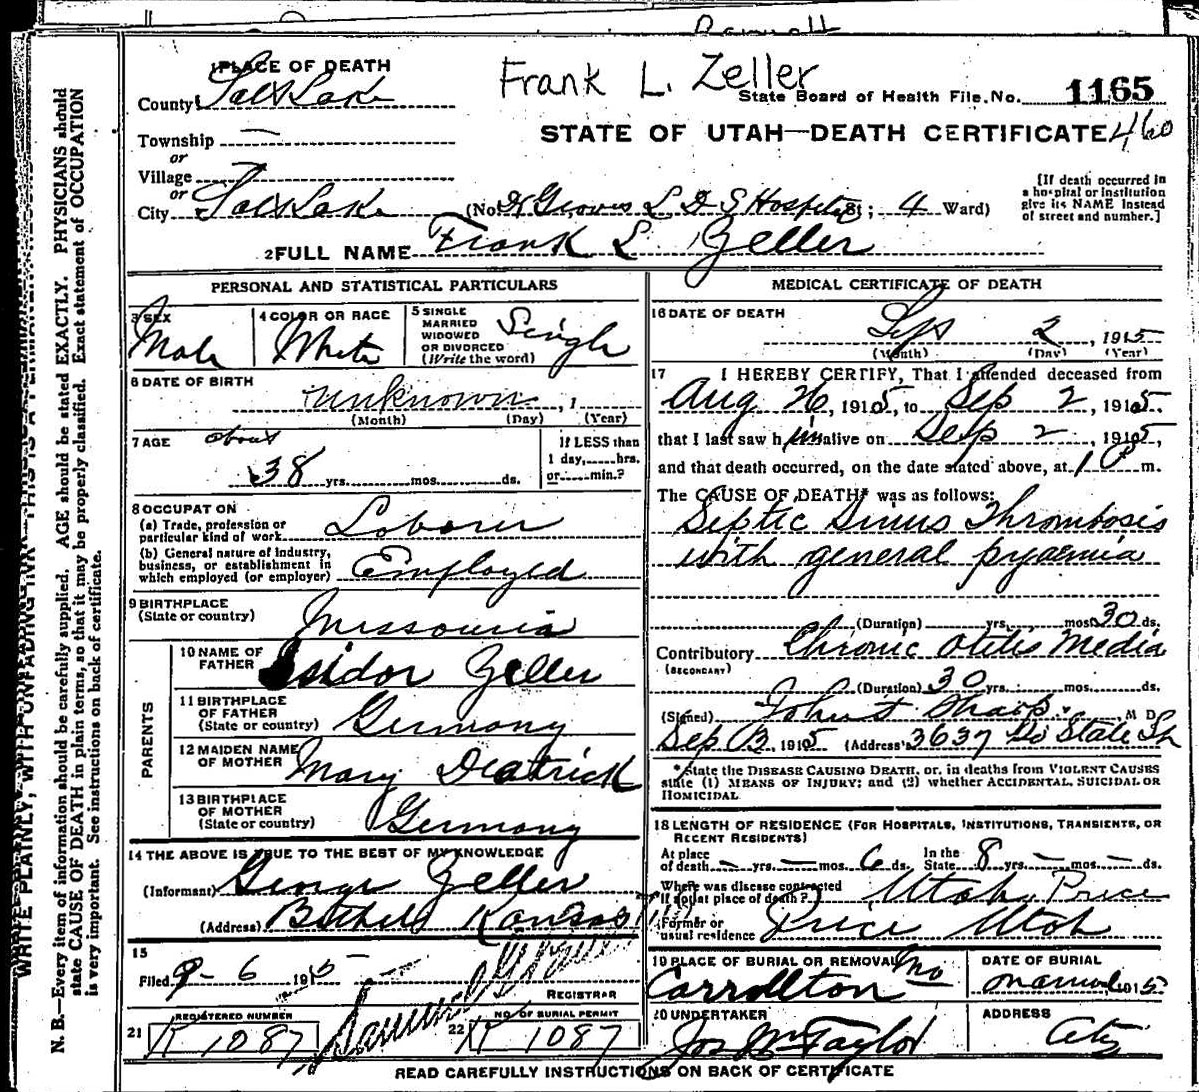 WRITE PLAINLY, WITH UNFADING INK—THIS IS A PERMANENT
N. B.—Every item of information should be carefully supplied. AGE should be stated EXACTLY. PHYSICIANS should
state CAUSE OF DEATH in plain terms, so that it may be properly classified. Exact statement of OCCUPATION
is very important. See instructions on back of certificate.
1 PLACE OF DEATH
County Salt Lake
Township —
or
Village
or
City Salt Lake
Frank L. Zeller
State Board of Health File No. 1165
STATE OF UTAH—DEATH CERTIFICATE 460
(No. Dr Groves L D S Hospital St; 4 Ward)
[If death occurred in
a hospital or institution
give its NAME instead
of street and number.]
2 FULL NAME Frank L. Zeller
PERSONAL AND STATISTICAL PARTICULARS
3 SEX
Male
4 COLOR OR RACE
White
5 SINGLE
MARRIED
WIDOWED
OR DIVORCED
(Write the word)
Single
6 DATE OF BIRTH
Unknown, 1
(Month) (Day) (Year)
7 AGE about
38 yrs. mos. ds.
If LESS than
1 day, hrs.
or min.?
8 OCCUPATION
(a) Trade, profession or
particular kind of work Laborer
(b) General nature of industry,
business, or establishment in
which employed (or employer) Employed
9 BIRTHPLACE
(State or country) Missouria
PARENTS
10 NAME OF
FATHER Isidor Zeller
11 BIRTHPLACE
OF FATHER
(State or country) Germany
12 MAIDEN NAME
OF MOTHER Mary Deatrick
13 BIRTHPLACE
OF MOTHER
(State or country) Germany
14 THE ABOVE IS TRUE TO THE BEST OF MY KNOWLEDGE
(Informant) George Zeller
(Address) Bethel Kansas
15
Filed 9-6 1915
REGISTRAR
21 REGISTERED NUMBER
K 1087
22 NO. OF BURIAL PERMIT
K 1087
MEDICAL CERTIFICATE OF DEATH
16 DATE OF DEATH
Sept 2, 1915
(Month) (Day) (Year)
17 I HEREBY CERTIFY, That I attended deceased from
Aug 26, 1915, to Sep 2, 1915.
that I last saw him alive on Sep 2, 1915,
and that death occurred, on the date stated above, at 1 P m.
The CAUSE OF DEATH* was as follows:
Septic Sinus Thrombosis
with general pyaemia
(Duration) yrs. mos. 30 ds.
Contributory Chronic Otitis Media
(SECONDARY)
(Duration) 30 yrs. mos. ds.
(Signed) John F Sharp M D
Sep 3, 1915 (Address) 3637 So State St
* State the DISEASE CAUSING DEATH, or, in deaths from VIOLENT CAUSES
state (1) MEANS OF INJURY; and (2) whether ACCIDENTAL, SUICIDAL OR
HOMICIDAL
18 LENGTH OF RESIDENCE (FOR HOSPITALS, INSTITUTIONS, TRANSIENTS, OR
RECENT RESIDENTS)
At place
of death — yrs. — mos. 6 ds.
In the
State 8 yrs. — mos. — ds.
Where was disease contracted
if not at place of death? Utah, Price
Former or
usual residence Price Utah
19 PLACE OF BURIAL OR REMOVAL
Carrollton Mo
DATE OF BURIAL
1915
20 UNDERTAKER
Jos Wm Taylor
ADDRESS
City
READ CAREFULLY INSTRUCTIONS ON BACK OF CERTIFICATE